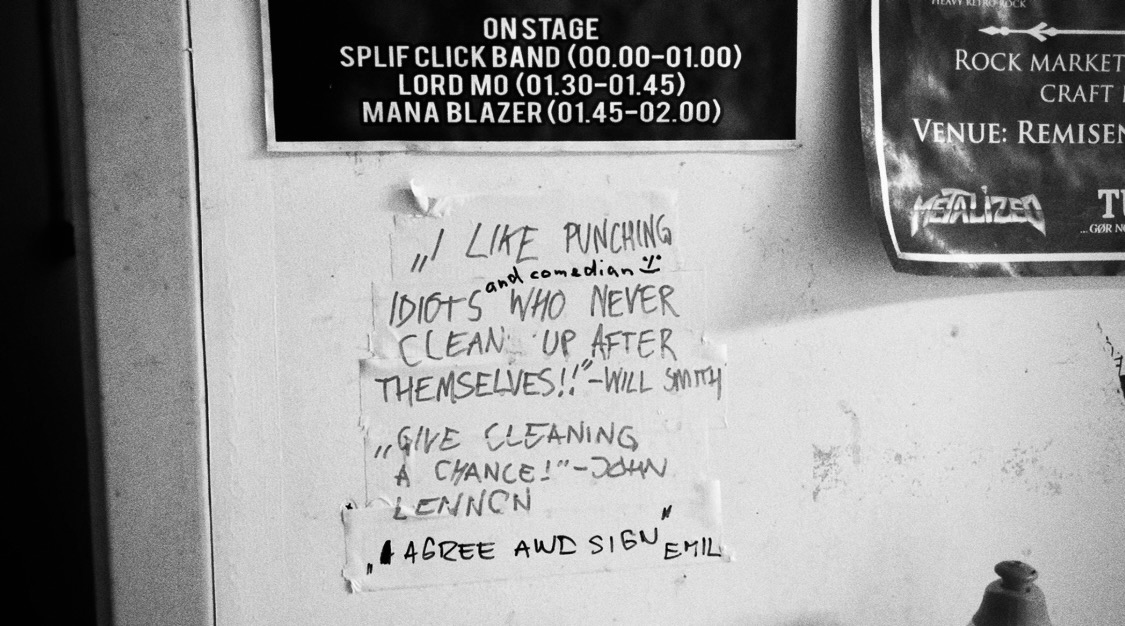 ON STAGE
SPLIF CLICK BAND (00.00-01.00)
LORD MO (01.30-01.45)
MANA BLAZER (01.45-02.00)
HEAVY RETRO-ROCK
ROCK MARKET
CRAFT
VENUE: REMISEN
METALIZED
...GØR
„I LIKE PUNCHING
and comedian
IDIOTS WHO NEVER
CLEAN UP AFTER
THEMSELVES!!"-WILL SMITH
„GIVE CLEANING
A CHANCE!"-JOHN
LENNON
„I AGREE AND SIGN" EMIL